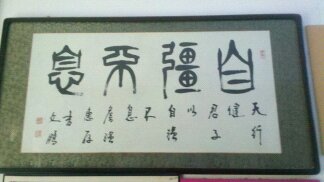 自彊不息
天行
健
君子
以
自强
不
息
惠存